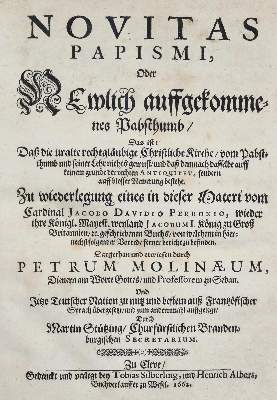 NOVITAS
PAPISMI,
Oder
Newlich auffgekomme-
nes Pabsthumb/
Das ist:
Daß die uralte rechtgläubige Christliche Kirche/ vom Pabst-
thumb und seiner Lehr nichts gewust/ und daß dannach dasselbe auff
keinem grunde der rechten ANTIQUITET, sondern
auff blosser Newerung bestehe.
Zu wiederlegung eines in dieser Materi vom
Cardinal JACOBO DAVIDEO PERRONIO, wieder
ihre Königl. Mayest. weyland JACOBUM I. König zu Groß
Britannien/ &c. geschriebenen Buchs/ von welchem in hier-
nechst folgender Vorrede ferner bericht zu befinden.
Dargethan und erwiesen durch
PETRUM MOLINÆUM,
Dienern am Wort Gottes/ und Professorem zu Sedan.
Und
Jetzo Teutscher Nation zu nutz und bestem auß Frantzösischer
Sprach übergesetzt/ und zum andernmal auffgelegt/
Durch
Martin Stützing/ Churfürstlichen Branden-
burgischen SECRETARIUM.
Zu Cleve/
Gedruckt und verlegt bey Tobias Silberling/ und Henrich Albers/
Buchverkauffer zu Wesel. 1662.